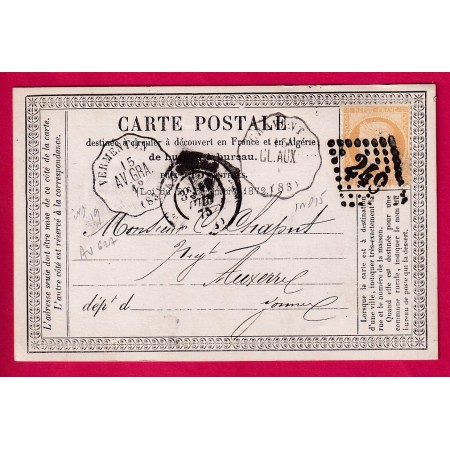 CARTE POSTALE
destinée à circuler à découvert en France et en Algérie
de bureau à bureau.
1873
VERMENT
15
AV.GRA.
(83)
CL.AUX
(83)
75
Monsieur Chaput
Négt
Auxerre
dépt d Yonne
ind 19
AV 622
ind 15
L'adresse seule doit être mise de ce côté de la carte.
L'autre côté est réservé à la correspondance.
Lorsque la carte est à destination
d'une ville, indiquer très-exactement la
rue et le numéro de la maison.
Quand elle est destinée pour une
commune rurale, indiquer le nom du
bureau de poste qui la dessert.